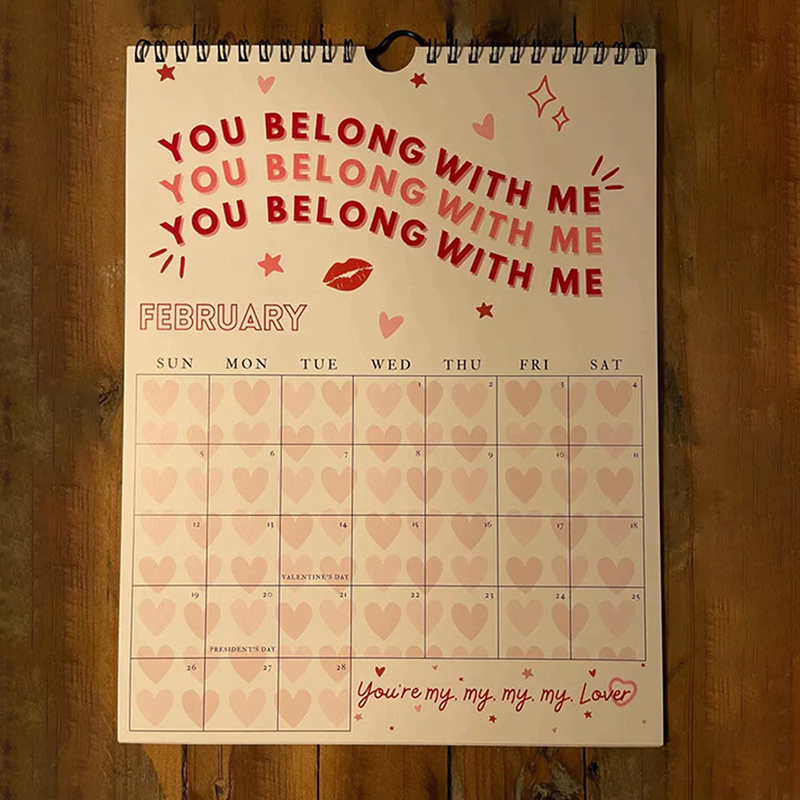 YOU BELONG WITH ME
YOU BELONG WITH ME
YOU BELONG WITH ME
FEBRUARY
SUN MON TUE WED THU FRI SAT
1 2 3 4
5 6 7 8 9 10 11
12 13 14 15 16 17 18
VALENTINE'S DAY
19 20 21 22 23 24 25
PRESIDENT'S DAY
26 27 28
You're my, my, my, my, Lover